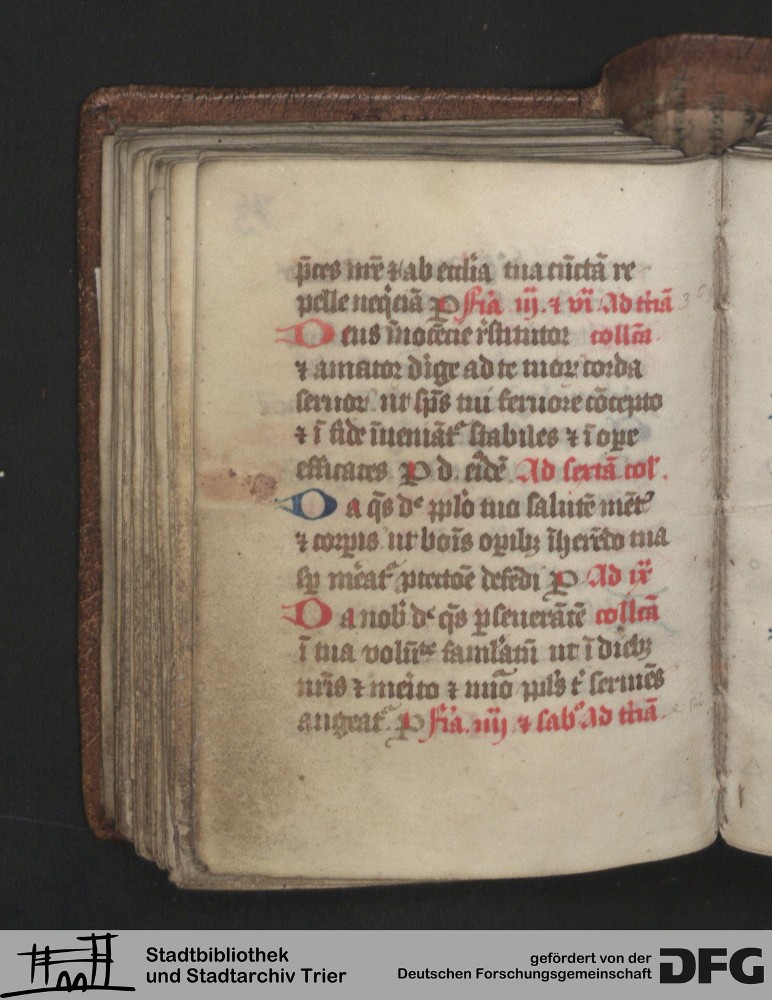 p̄ces nr̄e ⁊ ab ecclīa tua cūctā re
pelle neq̇ciā P fīa iij. ⁊ vi Ad tīā
Deus īnocēcie r̄stitutor collca
⁊ amator dīge ad te tuor corda
seruor ut sp̄s tui feruore cōcepto
⁊ ī fide īueniāt᷑ stabiles ⁊ ī oꝑe
efficaces P d. eīdē Ad sextā col'.
Da q̄s de ꝓplo tuo salutē mēt᷑
⁊ corꝑis ut boīs oꝑibꝫ īherēdo tua
sꝑ mēat᷑ ꝓtectōe defēdi P Ad ix
Da nob de q̄s ꝑseuerātē collcā
ī tua volūte famlatū ut ī diebꝫ
nrīs ⁊ merito ⁊ nūo ppl's t' seruiēs
augeat᷑. P fīa. iiij ⁊ sab' Ad tīā.
Stadtbibliothek
und Stadtarchiv Trier
gefördert von der
Deutschen Forschungsgemeinschaft
DFG